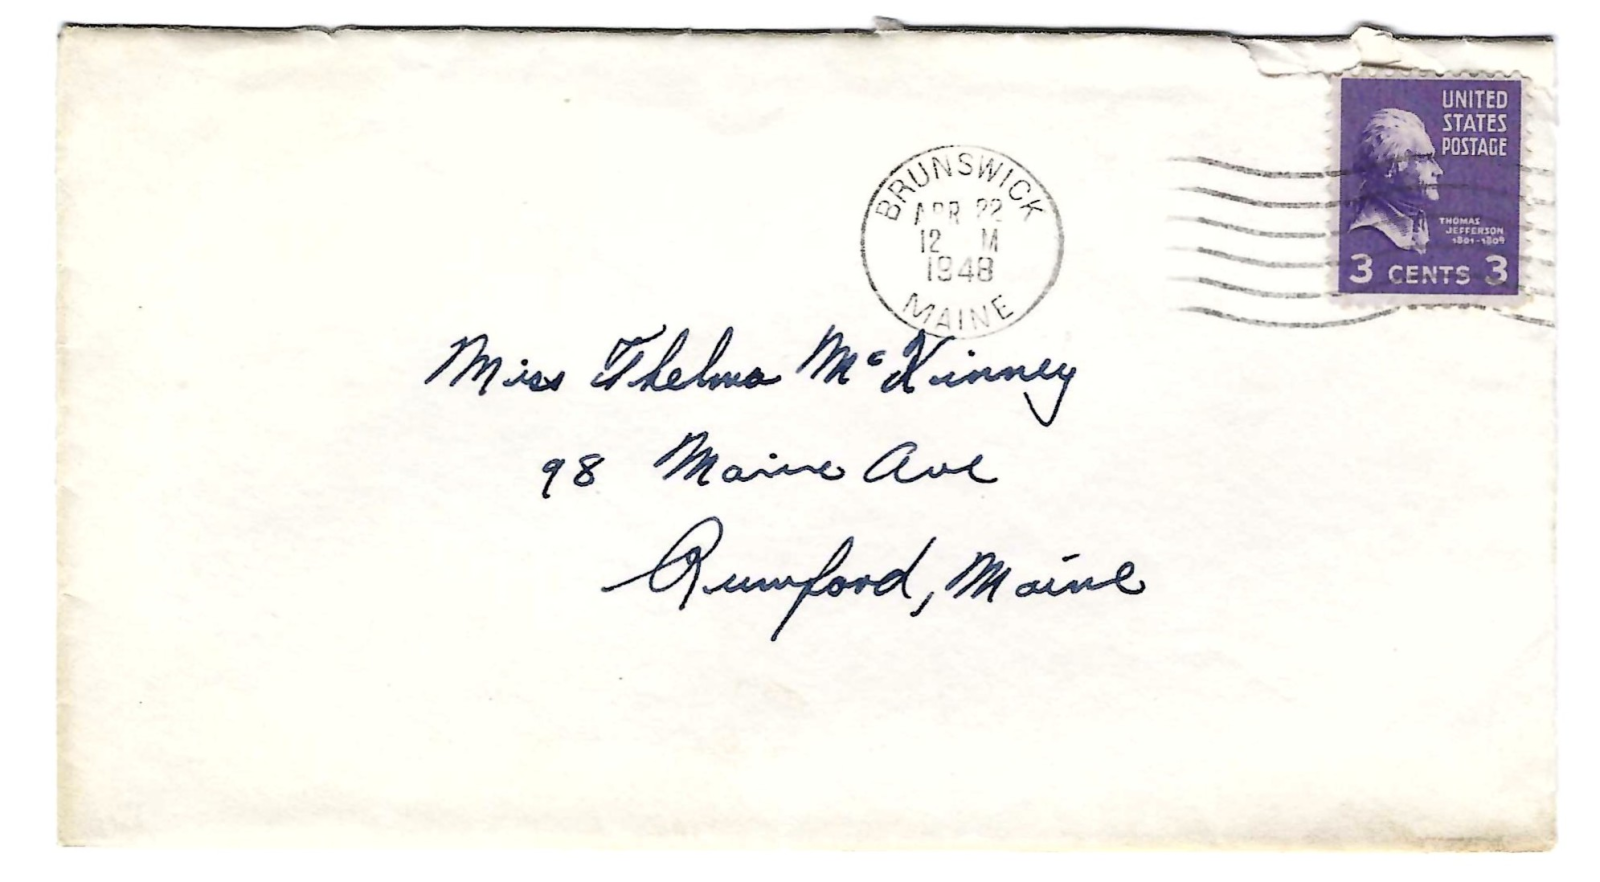 UNITED
STATES
POSTAGE
THOMAS
JEFFERSON
1801-1809
3 CENTS 3
BRUNSWICK
APR 22
12 M
1948
MAINE
Miss Thelma McKinney
98 Maine Ave
Rumford, Maine